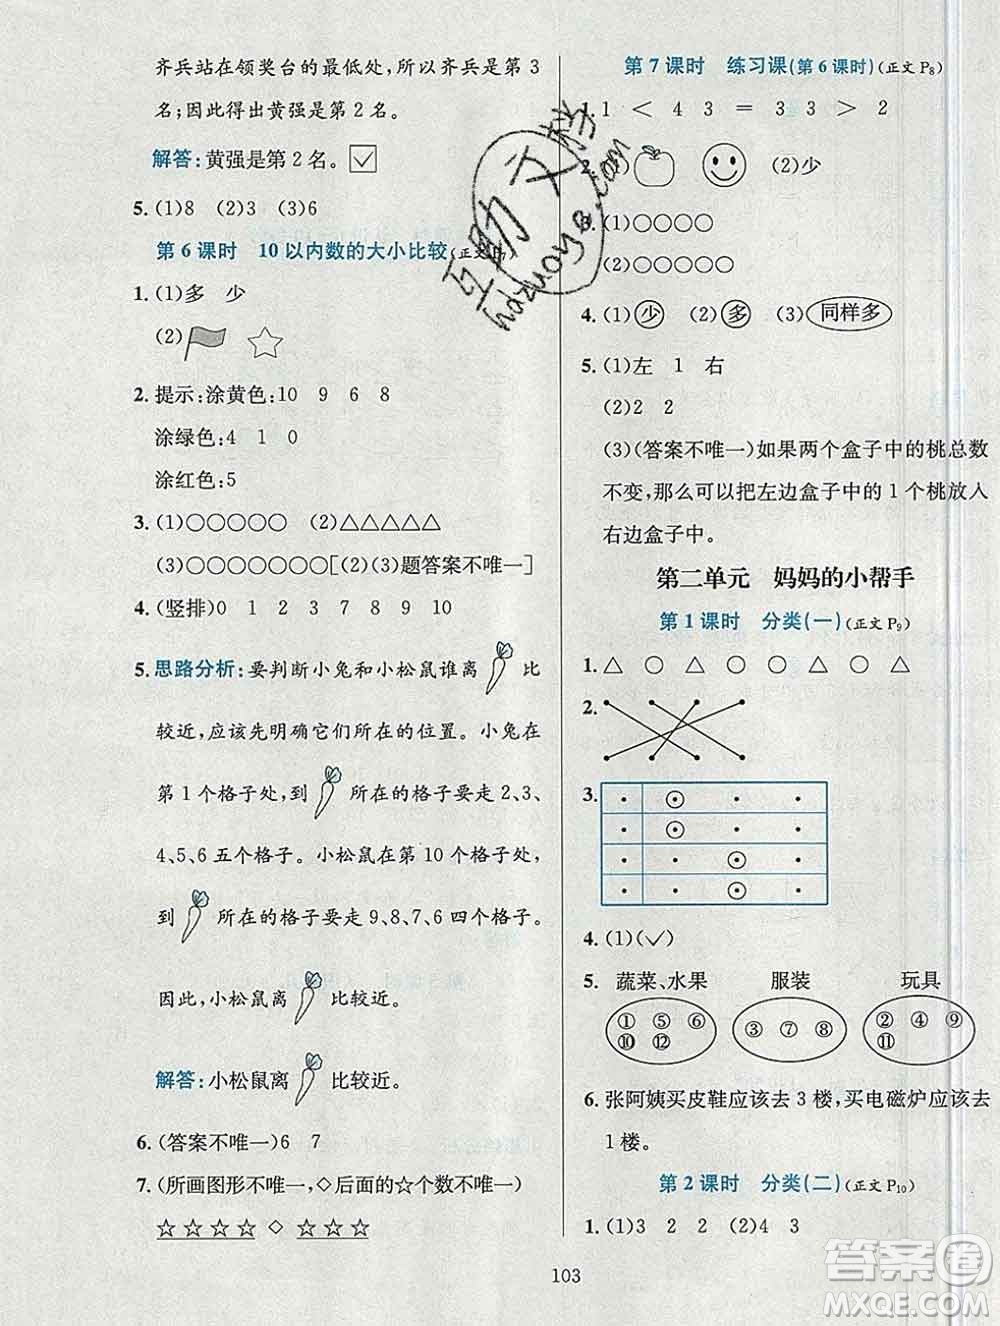 齐兵站在领奖台的最低处,所以齐兵是第 3
名;因此得出黄强是第 2 名。
解答:黄强是第 2 名。☑
5. (1)8 (2)3 (3)6
第 6 课时 10 以内数的大小比较(正文P7)
1. (1)多 少
(2)
2. 提示:涂黄色:10 9 6 8
涂绿色:4 1 0
涂红色:5
3. (1)○○○○○ (2)△△△△△
(3)○○○○○○○[(2)(3)题答案不唯一]
4. (竖排)0 1 2 3 7 8 9 10
5. 思路分析:要判断小兔和小松鼠谁离 比
较近,应该先明确它们所在的位置。小兔在
第 1 个格子处,到 所在的格子要走 2、3、
4、5、6 五个格子。小松鼠在第 10 个格子处,
到 所在的格子要走 9、8、7、6 四个格子。
因此,小松鼠离 比较近。
解答:小松鼠离 比较近。
6. (答案不唯一)6 7
7. (所画图形不唯一,◇后面的☆个数不唯一)
☆☆☆☆ ◇ ☆☆☆
第 7 课时 练习课(第 6 课时)(正文 P8)
1. 1 < 4 3 = 3 3 > 2
2. (2)少
3. (1)○○○○
(2)○○○○○
4. (1)少 (2)多 (3)同样多
5. (1)左 1 右
(2)2 2
(3)(答案不唯一)如果两个盒子中的桃总数
不变,那么可以把左边盒子中的 1 个桃放入
右边盒子中。
第二单元 妈妈的小帮手
第 1 课时 分类(一)(正文 P9)
1. △ ○ △ ○ ○ △ ○ △
2.
3.
4. (1)(✓)
5. 蔬菜、水果 服装 玩具
① ⑤ ⑥ ⑩ ⑫
③ ⑦ ⑧
② ④ ⑨ ⑪
6. 张阿姨买皮鞋应该去 3 楼,买电磁炉应该去
1 楼。
第 2 课时 分类(二)(正文 P10)
1. (1)3 2 2 (2)4 3
103
互助文档
hdzuoye.com
答案圈
MXQE.COM